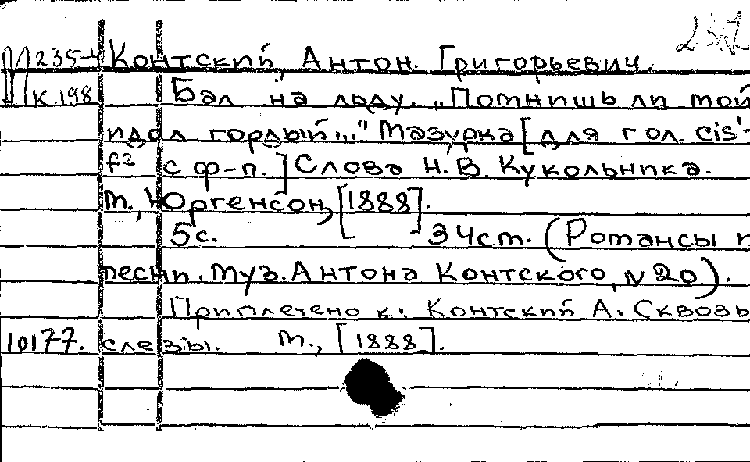 235-4 Контский, Антон Григорьевич.
К 198 Бал на льду. „Помнишь ли мой
идол гордый..." Мазурка [для гол. cis'-
f² с ф-п.] Слова Н. В. Кукольника.
М., Юргенсон, [1888].
5 с. 34 ст. (Романсы и
песни. Муз. Антона Контского, № 20).
Приплетено к: Контский А. Сквозь
10177. слезы. М., [1888].